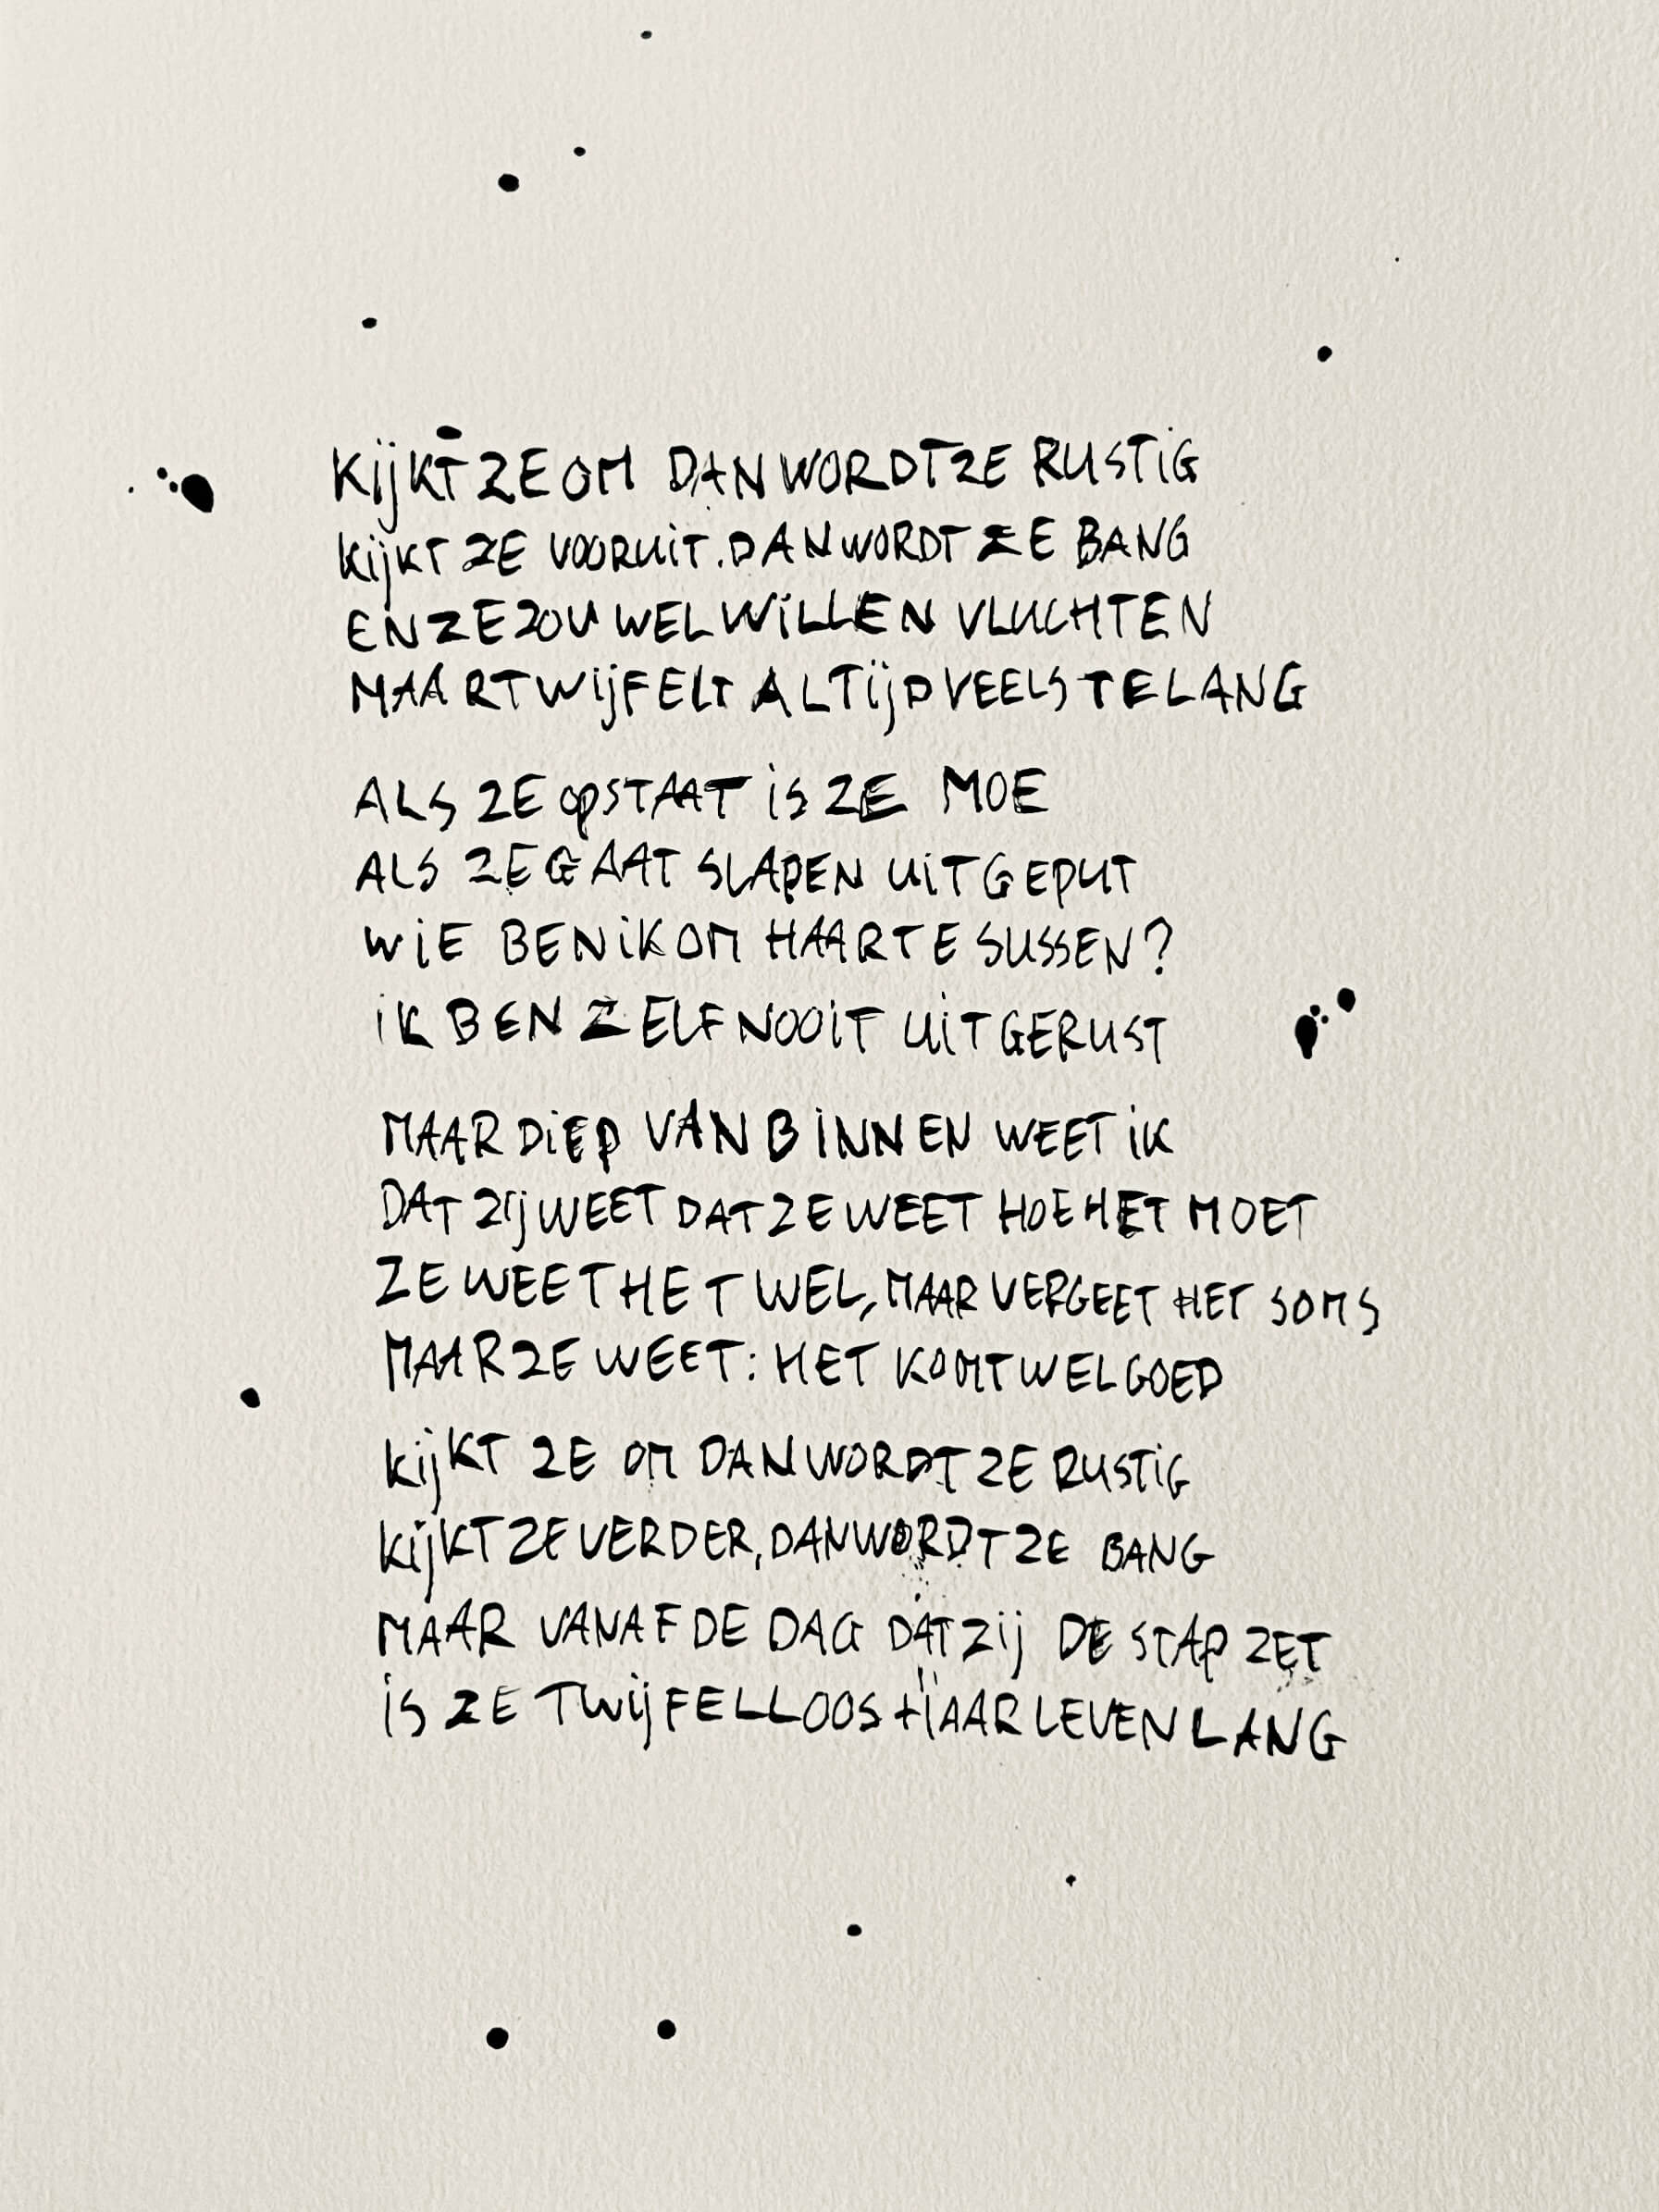 KIJKT ZE OM DAN WORDT ZE RUSTIG
KIJKT ZE VOORUIT. DAN WORDT ZE BANG
EN ZE ZOU WEL WILLEN VLUCHTEN
MAAR TWIJFELT ALTIJD VEELS TE LANG
ALS ZE OPSTAAT IS ZE MOE
ALS ZE GAAT SLAPEN UITGEPUT
WIE BEN IK OM HAAR TE SUSSEN?
IK BEN ZELF NOOIT UITGERUST
MAAR DIEP VAN BINNEN WEET IK
DAT ZIJ WEET DAT ZE WEET HOE HET MOET
ZE WEET HET WEL, MAAR VERGEET HET SOMS
MAAR ZE WEET: HET KOMT WEL GOED
KIJKT ZE OM DAN WORDT ZE RUSTIG
KIJKT ZE VERDER, DAN WORDT ZE BANG
MAAR VANAF DE DAG DAT ZIJ DE STAP ZET
IS ZE TWIJFELLOOS HAAR LEVEN LANG